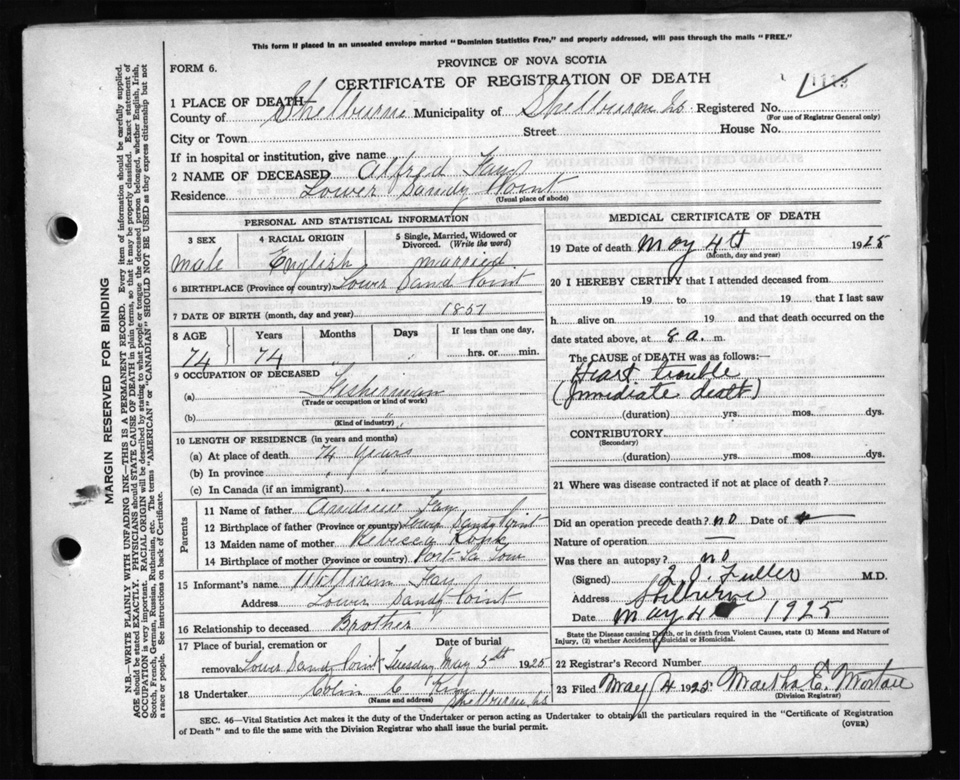 This form if placed in an unsealed envelope marked "Dominion Statistics Free," and properly addressed, will pass through the mails "FREE."
FORM 6.
PROVINCE OF NOVA SCOTIA
CERTIFICATE OF REGISTRATION OF DEATH
1 PLACE OF DEATH—
County of Shelburne Municipality of Shelburne Registered No.
(For use of Registrar General only)
City or Town Street House No.
If in hospital or institution, give name
2 NAME OF DECEASED Alfred Fay
Residence Lower Sandy Point
(Usual place of abode)
MARGIN RESERVED FOR BINDING
N.B.—WRITE PLAINLY WITH UNFADING INK—THIS IS A PERMANENT RECORD. Every item of information should be carefully supplied.
AGE should be stated EXACTLY. PHYSICIANS should STATE CAUSE OF DEATH in plain terms, so that it may be properly classified. Exact statement of
OCCUPATION is very important. RACIAL ORIGIN will be described by stating to what people or tongue the deceased person belonged, whether English, Irish,
Scotch, French, German, Russian, Ruthenian, etc. The terms "AMERICAN" or "CANADIAN" SHOULD NOT BE USED as they express citizenship but not
a race or people. See instructions on back of Certificate.
PERSONAL AND STATISTICAL INFORMATION
3 SEX 4 RACIAL ORIGIN 5 Single, Married, Widowed or Divorced. (Write the word)
male English married
6 BIRTHPLACE (Province or country) Lower Sand Point
7 DATE OF BIRTH (month, day and year) 1851
8 AGE Years Months Days If less than one day,
74 74 " " hrs. or min.
9 OCCUPATION OF DECEASED
(a) Fisherman
(Trade or occupation or kind of work)
(b) "
(Kind of industry)
10 LENGTH OF RESIDENCE (in years and months)
(a) At place of death 74 years
(b) In province "
(c) In Canada (if an immigrant) " "
Parents
11 Name of father Andrew Fay
12 Birthplace of father (Province or country) Lower Sandy Point
13 Maiden name of mother Rebecca
14 Birthplace of mother (Province or country) Port La Tour
15 Informant's name William Fay
Address Lower Sandy Point
16 Relationship to deceased Brother
17 Place of burial, cremation or Date of burial
removal Lower Sand Point Tuesday May 5th 1925
18 Undertaker Colin C. King
(Name and address) Shelburne, NS
MEDICAL CERTIFICATE OF DEATH
19 Date of death May 4th 1925
(Month, day and year)
20 I HEREBY CERTIFY that I attended deceased from
19 to 19 , that I last saw
h alive on 19 and that death occurred on the
date stated above, at 8 a. m.
The CAUSE of DEATH was as follows:—
Heart trouble
(Immediate death)
(duration) yrs. mos. dys.
CONTRIBUTORY
(Secondary)
(duration) yrs. mos. dys.
21 Where was disease contracted if not at place of death?
Did an operation precede death? no Date of —
Nature of operation —
Was there an autopsy? no
(Signed) Fuller M.D.
Address Shelburne
Date May 4 1925
State the Disease causing Death, or in death from Violent Causes, state (1) Means and Nature of
Injury, (2) whether Accidental, Suicidal or Homicidal.
22 Registrar's Record Number
23 Filed May 4 1925 Martha E.
(Division Registrar)
SEC. 46—Vital Statistics Act makes it the duty of the Undertaker or person acting as Undertaker to obtain all the particulars required in the "Certificate of Registration
of Death" and to file the same with the Division Registrar who shall issue the burial permit.
(OVER)